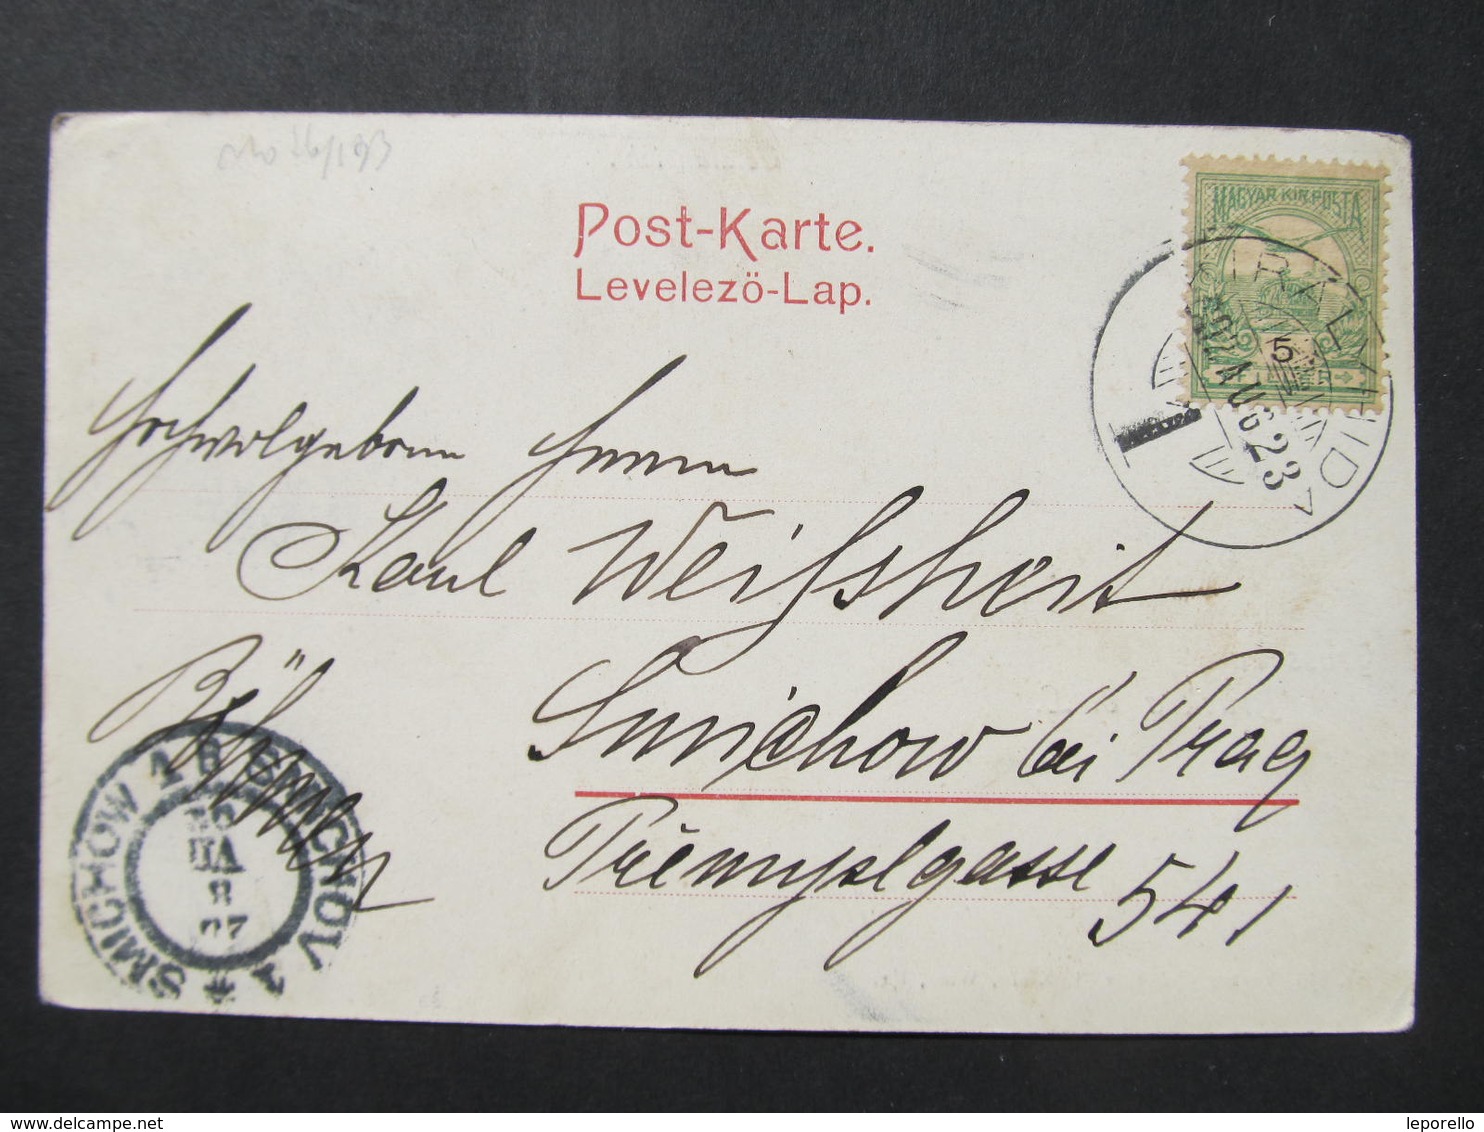 Post-Karte.
Levelezö-Lap.
MAGYAR KIR. POSTA
5
AUG 23
Hochwolgeboren Herrn
Karl Weifsheit
Smichow bei Prag
Přemyslgasse 541
Böhmen
SMICHOW 1 * SMICHOV 1
leporello